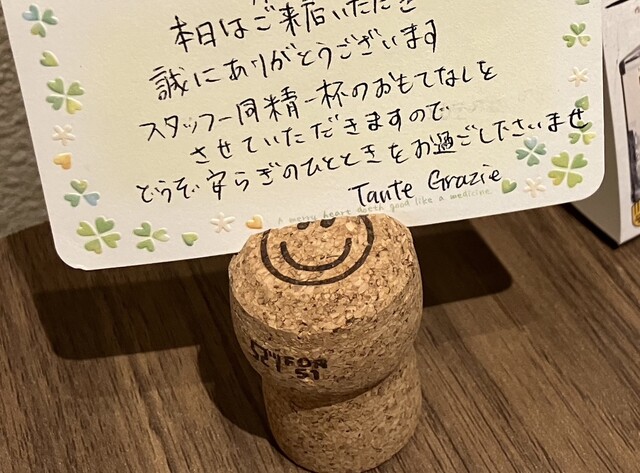 本日はご来店いただき
誠にありがとうございます
スタッフ一同精一杯のおもてなしを
させていただきますので
どうぞ安らぎのひとときをお過ごしくださいませ
Tante Grazie
A merry heart doeth good like a medicine.
FOR
51